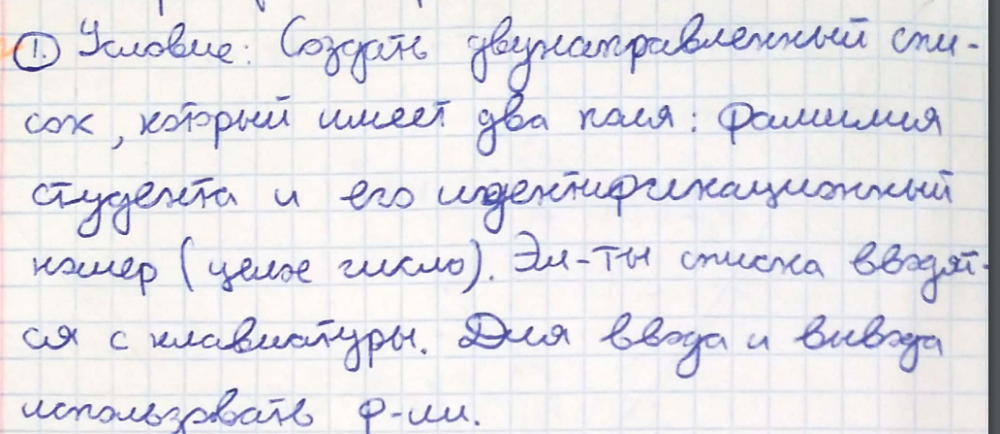 1. Условие: Создать двунаправленный спи-
сок, который имеет два поля: фамилия
студента и его идентификационный
номер (целое число). Эл-ты списка вводят-
ся с клавиатуры. Для ввода и вывода
использовать ф-ии.